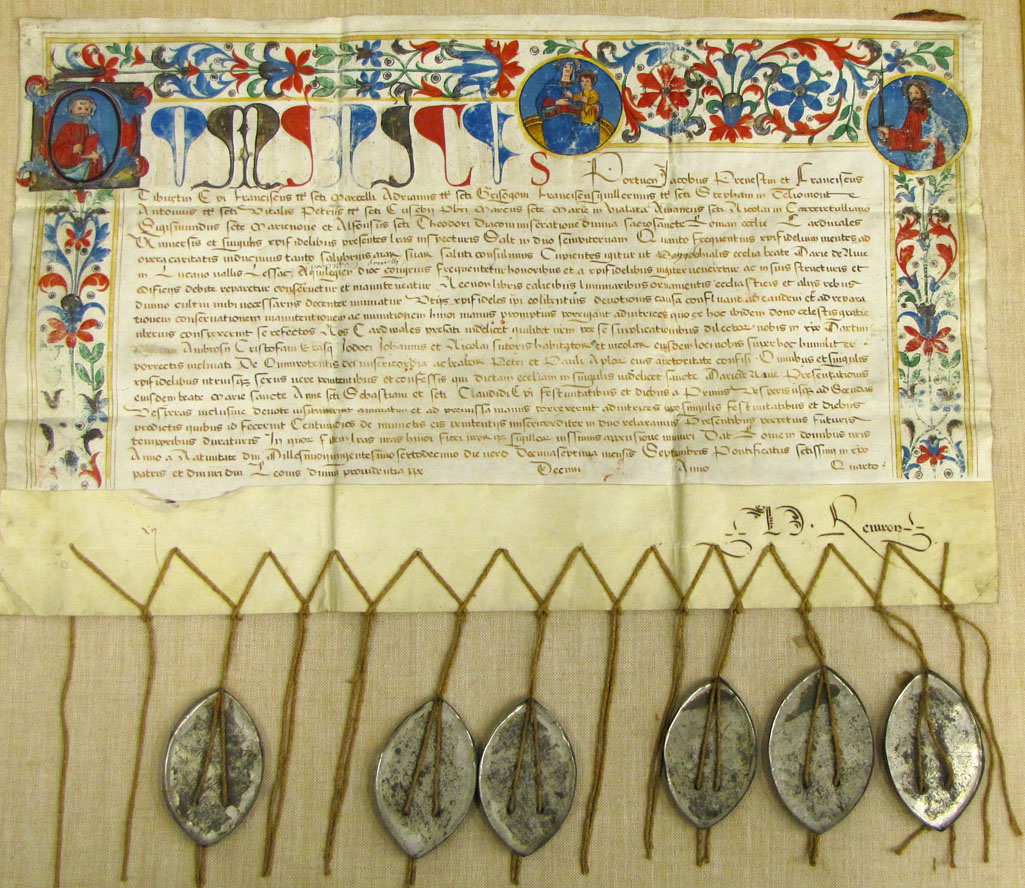 Dominicus Portuen Jacobus Prenestin et Franciscus
Tiburtin Epi Franciscus tt scti Marcelli Adrianus tt scti Grisogoni Franciscus Guillermus tt scti Stephani in Celiomont
Antonius tt scti Vitalis Petrus tt scti Eusebii Pbri Marcus scte Marie in Vialata Amaneus scti Nicolai in Carcere tulliano
Sigismundus scte Marienove et Alfonsus scti Theodori Diaconi miseratione divina sacrosancte Roman ecclie Cardinales
Universis et singulis xpifidelibus presentes lras inspecturis Salt in dno sempiternam Quanto frequentius xpifidelium mentes ad
opera caritatis inducimus tanto salubrius aiar suar saluti consulimus Cupientes igitur ut Parrochialis ecclia beate Marie de Nive
in Lucavio vallis Lessac Aquilegien dioc congruis frequentetur honoribus et a xpifidelibus iugiter veneretur ac in suis structuris et
edificiis debite reparetur conservetur et manuteneatur Ac cum libris calicibus luminaribus ornamentis ecclesiasticis et aliis rebus
divino cultui inibi necessariis decenter muniatur Utqz xpifideles ipi eo libentius devotionis causa confluant ad eandem et ad repara
tionem conservationem manutentionem ac munitionem hmoi manus promptius porrigant adiutrices quo ex hoc ibidem dono celestis gratie
uberius conspexerint se refectos Nos Cardinales prefati videlicet quilibet nrm per se supplicationibus dilector nobis in xpo Martini
Ambrosii Cristofani Jodoci Johannis et Nicolai sutoris habitator et incolar eiusdem loci nobis super hoc humilit
porrectis inclinati De Omnipotentis dei misericordia ac beator Petri et Pauli Aplor eius auctoritate confisi Omnibus et singulis
xpifidelibus utriusqz sexus vere penitentibus et confessis qui dictam eccliam in singulis videlicet sancte Marie de Nive Presentationis
eiusdem beate Marie sancte Anne scti Sebastiani et scti Claudii Epi festivitatibus et diebus a Primis Vesperis usqz ad Secundas
Vesperas inclusive devote visitaverint annuatim et ad premissa manus porrexerint adiutrices pro singulis festivitatibus et diebus
predictis quibus id fecerint Centumdies de iniunctis eis penitentiis misericorditer in dno relaxamus Presentibus perpetuis futuris
temporibus duraturis In quor fidem lras nras hmoi fieri nrorqz sigillor iussimus appensione muniri Dat Rome in domibus nris
Anno a Nativitate dni Millesimoquingentesimo sextodecimo die vero Decimaseptima mensis Septembris Pontificatus sctissimi in xpo
patris et dni nri dni Leonis divina providentia ppe Decimi Anno Quarto